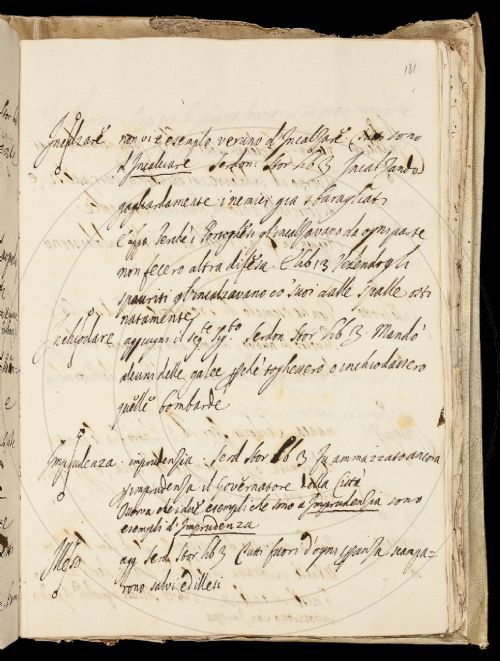 181
Incalzare non vi è esemplo veruno d'Incalzare sono
d'Incalciare Serdon: Stor lib 3 Incalzando
gagliardamente i nemici già sbaragliati
Perchè i Portoghesi gl'incalzavano da ogni parte
non fecero altra difesa. E lib 13 Vedendogli
spauriti gl'incalzavano co' suoi alle spalle osti
natamente
Inchiodare aggiugni il Serdon Stor lib 3 Mandò
alcuni delle galee togliessero o inchiodassero
quelle bombarde
Imprudenza imprudenzia Serd Stor lib 3 Fu ammazzato ancora
imprudenza il Governatore della Città
che i due esempli che sono a Imprudenzia sono
esempli d'Imprudenza
Illeso agg Serd Stor lib 3 Tutti fuori d'ogni scampa-
rono salvi ed illesi